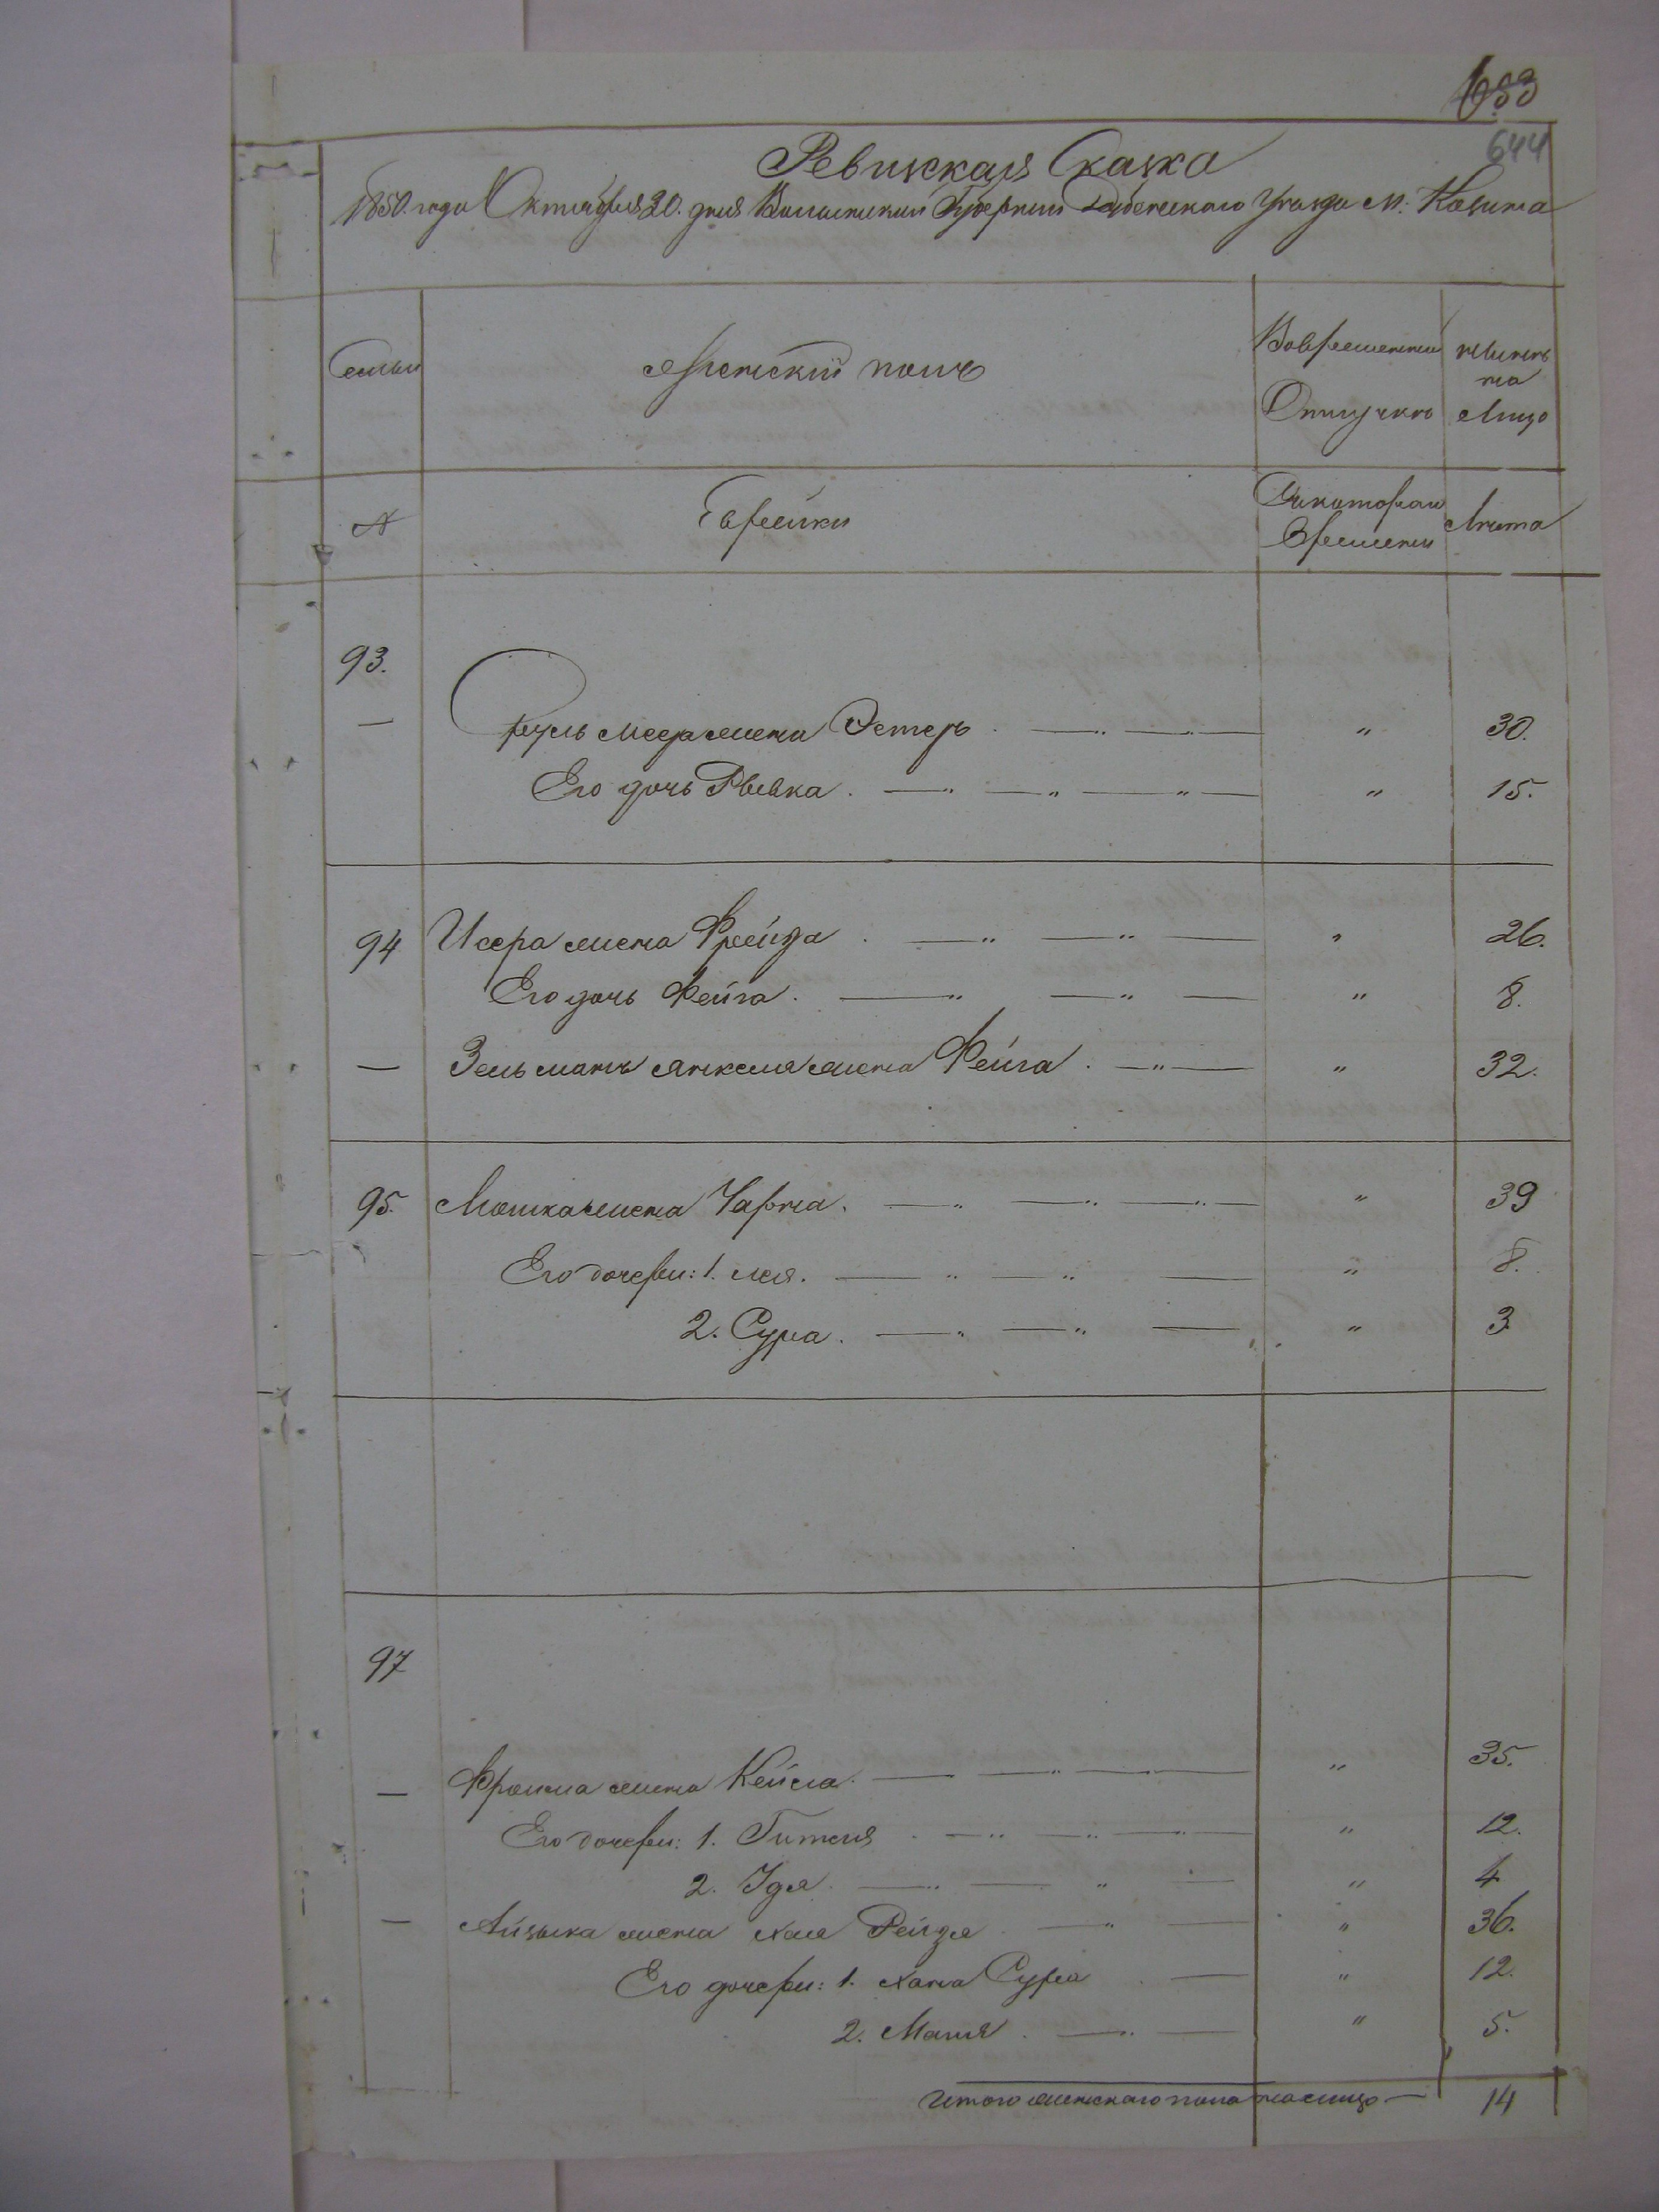 653
644
Ревизская Сказка
1850. года Октября 20. дня Волынской Губернии Дубенского Уезда м: Козина
Семьи
Женский полъ
Вовременной Отлучке
ныне на Лицо
№
Еврейки
Скоторого Времени
Лета
93.
— Сруль Меера жена Эстеръ . — " — " — " 30.
Его дочь Ривка . — " — " — " — " 15.
94 Исера жена Фрейда . — " — " — " 26.
Его дочь Фейга . — " — " — " 8.
— Зельманъ Янкеля жена Фейга . — " — " 32.
95. Мошка жена Чарна . — " — " — " — " 39
Его дочери: 1. Лея . — " — " — " 8.
2. Сура . — " — " — " 3
97
— Фроима жена Кейла . — — " — " — " 35.
Его дочери: 1. Гителя . — " — " — " — " 12.
2. Идя . — " — " — " 4
— Айзыка жена Хая Рейзя — " — " 36.
Его дочери: 1. Хана Сура . — " 12.
2. Маля . — " — " 5.
Итого женскаго пола налицо — 14